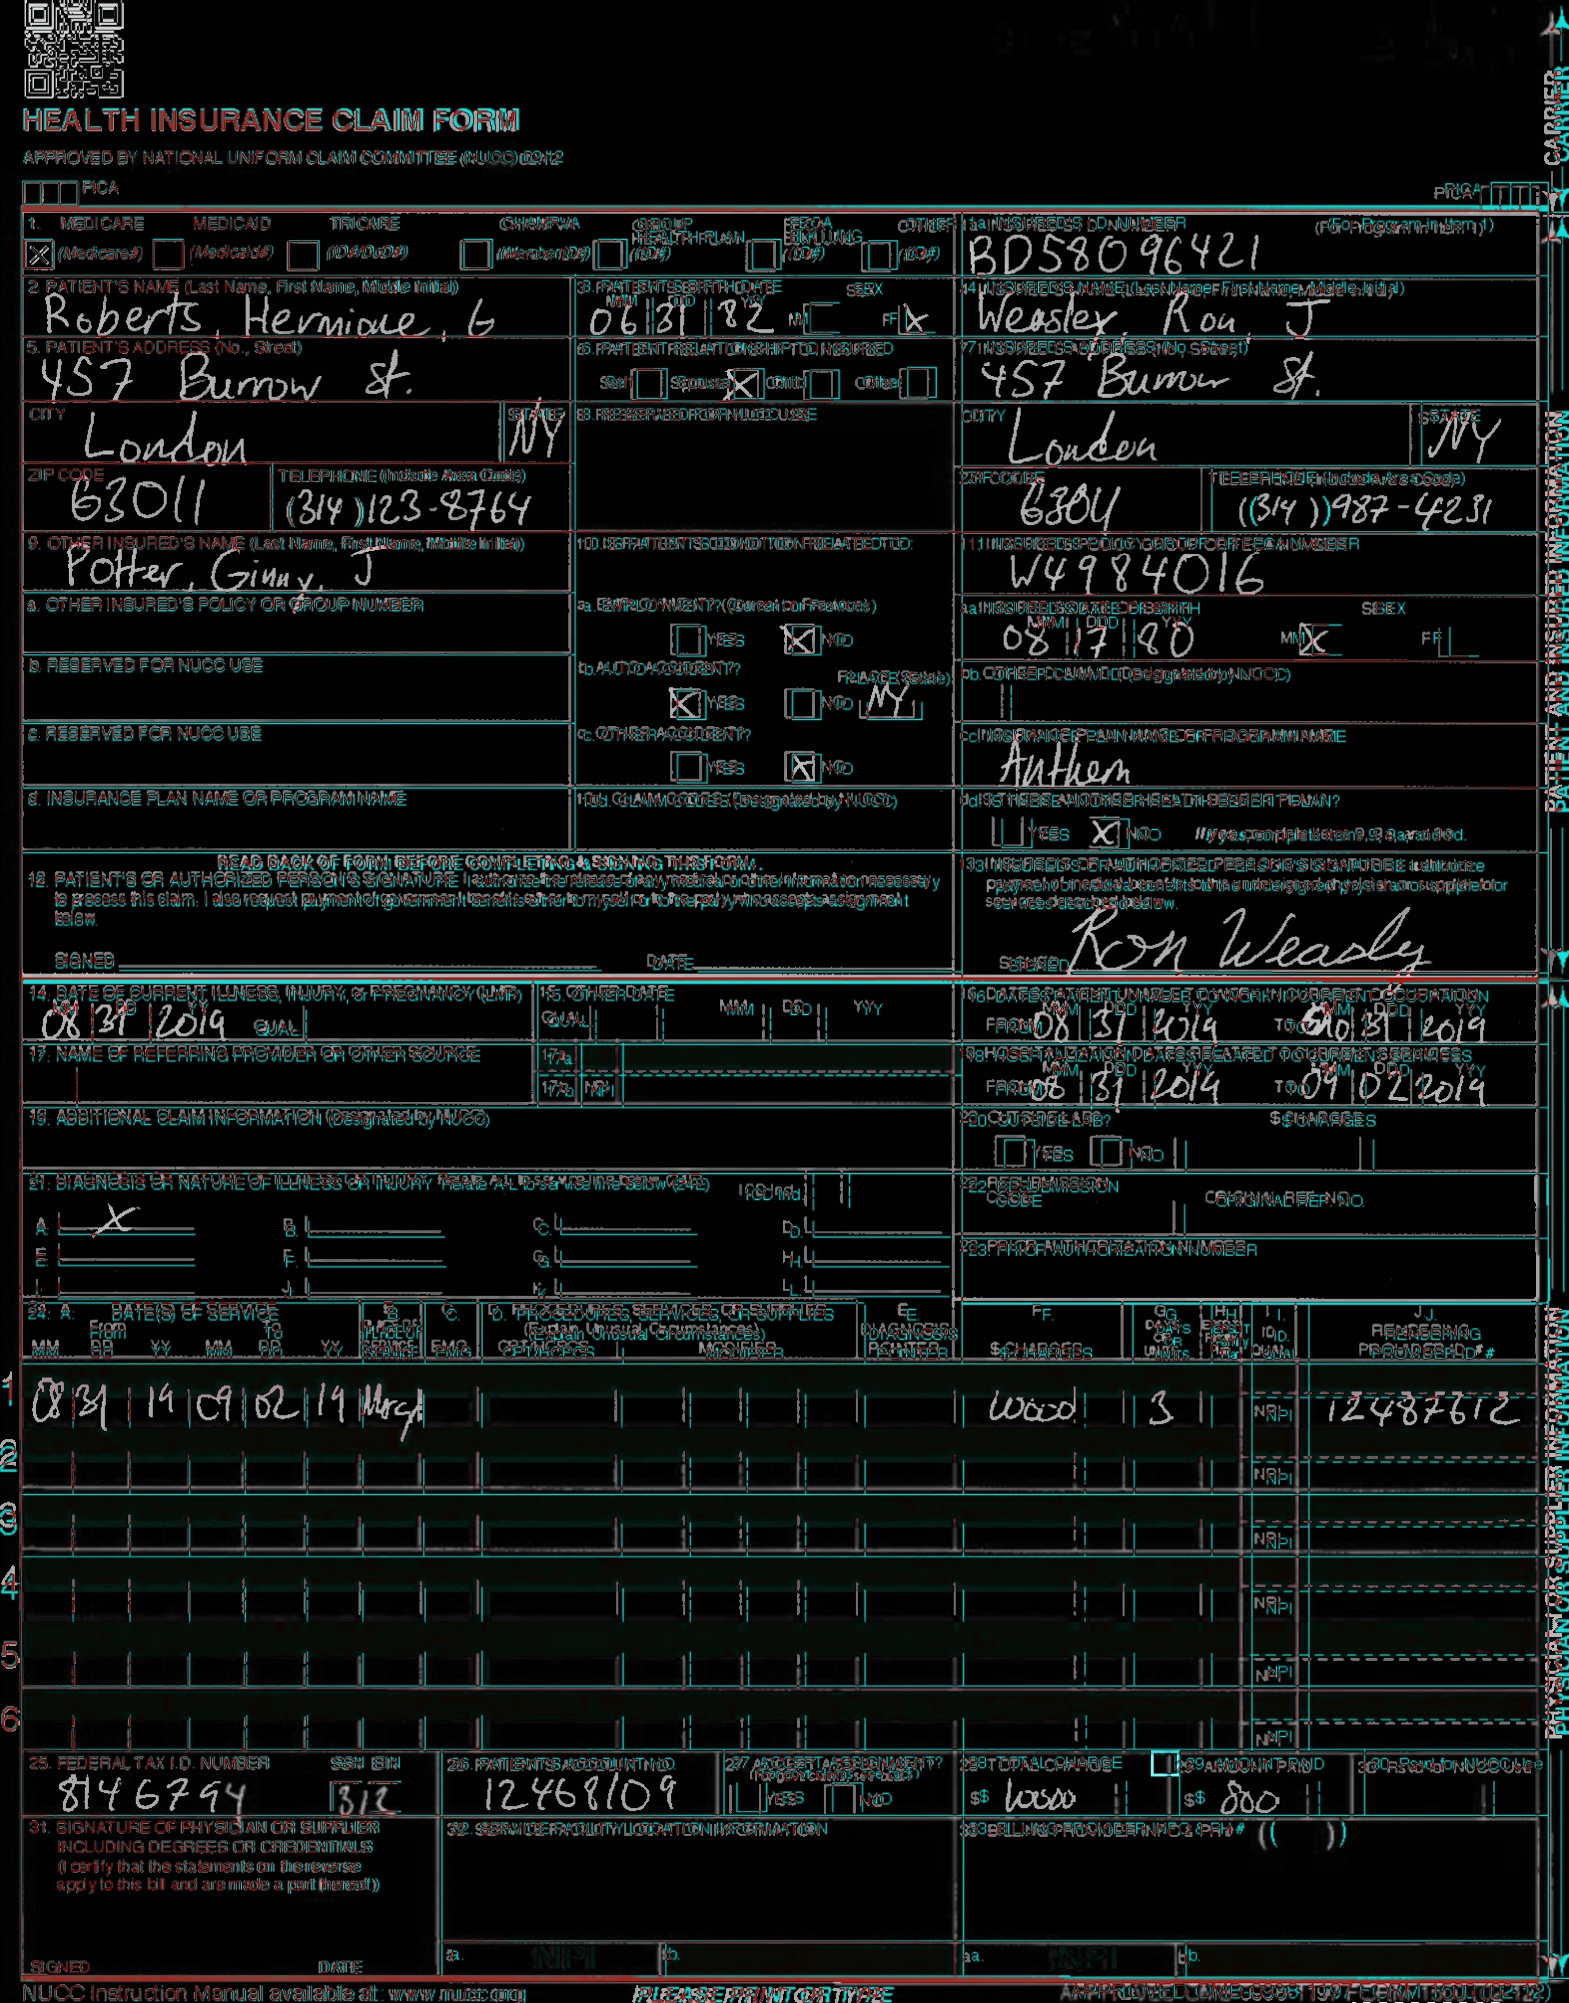 HEALTH INSURANCE CLAIM FORM
APPROVED BY NATIONAL UNIFORM CLAIM COMMITTEE (NUCC) 02/12
PICA
PICA
CARRIER
1. MEDICARE MEDICAID TRICARE CHAMPVA GROUP HEALTH PLAN FECA BLK LUNG OTHER
X (Medicare#) (Medicaid#) (ID#/DoD#) (Member ID#) (ID#) (ID#) (ID#)
1a. INSURED'S I.D. NUMBER (For Program in Item 1)
BD58096421
2. PATIENT'S NAME (Last Name, First Name, Middle Initial)
Roberts, Hermione, G
3. PATIENT'S BIRTH DATE SEX
MM DD YY
06 31 82 M F X
4. INSURED'S NAME (Last Name, First Name, Middle Initial)
Weasley, Ron, J
5. PATIENT'S ADDRESS (No., Street)
457 Burrow St.
6. PATIENT RELATIONSHIP TO INSURED
Self Spouse X Child Other
7. INSURED'S ADDRESS (No., Street)
457 Burrow St.
CITY STATE
London NY
8. RESERVED FOR NUCC USE
CITY STATE
London NY
ZIP CODE TELEPHONE (Include Area Code)
63011 (314) 123-8764
ZIP CODE TELEPHONE (Include Area Code)
(314) 987-4231
9. OTHER INSURED'S NAME (Last Name, First Name, Middle Initial)
Potter, Ginny, J
10. IS PATIENT'S CONDITION RELATED TO:
11. INSURED'S POLICY GROUP OR FECA NUMBER
W4984016
a. OTHER INSURED'S POLICY OR GROUP NUMBER
a. EMPLOYMENT? (Current or Previous)
YES X NO
a. INSURED'S DATE OF BIRTH SEX
MM DD YY
08 17 80 M X F
b. RESERVED FOR NUCC USE
b. AUTO ACCIDENT? PLACE (State)
X YES NO NY
b. OTHER CLAIM ID (Designated by NUCC)
c. RESERVED FOR NUCC USE
c. OTHER ACCIDENT?
YES X NO
c. INSURANCE PLAN NAME OR PROGRAM NAME
Anthem
d. INSURANCE PLAN NAME OR PROGRAM NAME
10d. CLAIM CODES (Designated by NUCC)
d. IS THERE ANOTHER HEALTH BENEFIT PLAN?
YES X NO If yes, complete items 9, 9a, and 9d.
PATIENT AND INSURED INFORMATION
READ BACK OF FORM BEFORE COMPLETING & SIGNING THIS FORM.
12. PATIENT'S OR AUTHORIZED PERSON'S SIGNATURE I authorize the release of any medical or other information necessary
to process this claim. I also request payment of government benefits either to myself or to the party who accepts assignment
below.
SIGNED DATE
13. INSURED'S OR AUTHORIZED PERSON'S SIGNATURE I authorize
payment of medical benefits to the undersigned physician or supplier for
services described below.
SIGNED Ron Weasly
14. DATE OF CURRENT ILLNESS, INJURY, or PREGNANCY (LMP)
MM DD YY
08 31 2019 QUAL.
15. OTHER DATE
QUAL. MM DD YY
16. DATES PATIENT UNABLE TO WORK IN CURRENT OCCUPATION
MM DD YY MM DD YY
FROM 08 31 2019 TO 31 2019
17. NAME OF REFERRING PROVIDER OR OTHER SOURCE
17a.
17b. NPI
18. HOSPITALIZATION DATES RELATED TO CURRENT SERVICES
MM DD YY MM DD YY
FROM 08 31 2019 TO 09 02 2019
19. ADDITIONAL CLAIM INFORMATION (Designated by NUCC)
20. OUTSIDE LAB? $ CHARGES
YES NO
21. DIAGNOSIS OR NATURE OF ILLNESS OR INJURY Relate A-L to service line below (24E) ICD Ind.
A. X B. C. D.
E. F. G. H.
I. J. K. L.
22. RESUBMISSION CODE ORIGINAL REF. NO.
23. PRIOR AUTHORIZATION NUMBER
24. A. DATE(S) OF SERVICE B. C. D. PROCEDURES, SERVICES, OR SUPPLIES E. F. G. H. I. J.
From To PLACE OF SERVICE (Explain Unusual Circumstances) DIAGNOSIS POINTER DAYS OR UNITS ID. QUAL. RENDERING PROVIDER ID. #
MM DD YY MM DD YY EMG CPT/HCPCS MODIFIER $ CHARGES
1 08 31 19 09 02 19 3 NPI 12487612
2 NPI
3 NPI
4 NPI
5 NPI
6 NPI
PHYSICIAN OR SUPPLIER INFORMATION
25. FEDERAL TAX I.D. NUMBER SSN EIN
8146794 312
26. PATIENT'S ACCOUNT NO.
12468109
27. ACCEPT ASSIGNMENT?
(For govt. claims, see back)
YES NO
28. TOTAL CHARGE
$ 10000
29. AMOUNT PAID
$ 800
30. Rsvd for NUCC Use
31. SIGNATURE OF PHYSICIAN OR SUPPLIER
INCLUDING DEGREES OR CREDENTIALS
(I certify that the statements on the reverse
apply to this bill and are made a part thereof.)
SIGNED DATE
32. SERVICE FACILITY LOCATION INFORMATION
a. NPI b.
33. BILLING PROVIDER INFO & PH # ( )
a. NPI b.
NUCC Instruction Manual available at: www.nucc.org
PLEASE PRINT OR TYPE
APPROVED OMB-0938-1197 FORM 1500 (02-12)